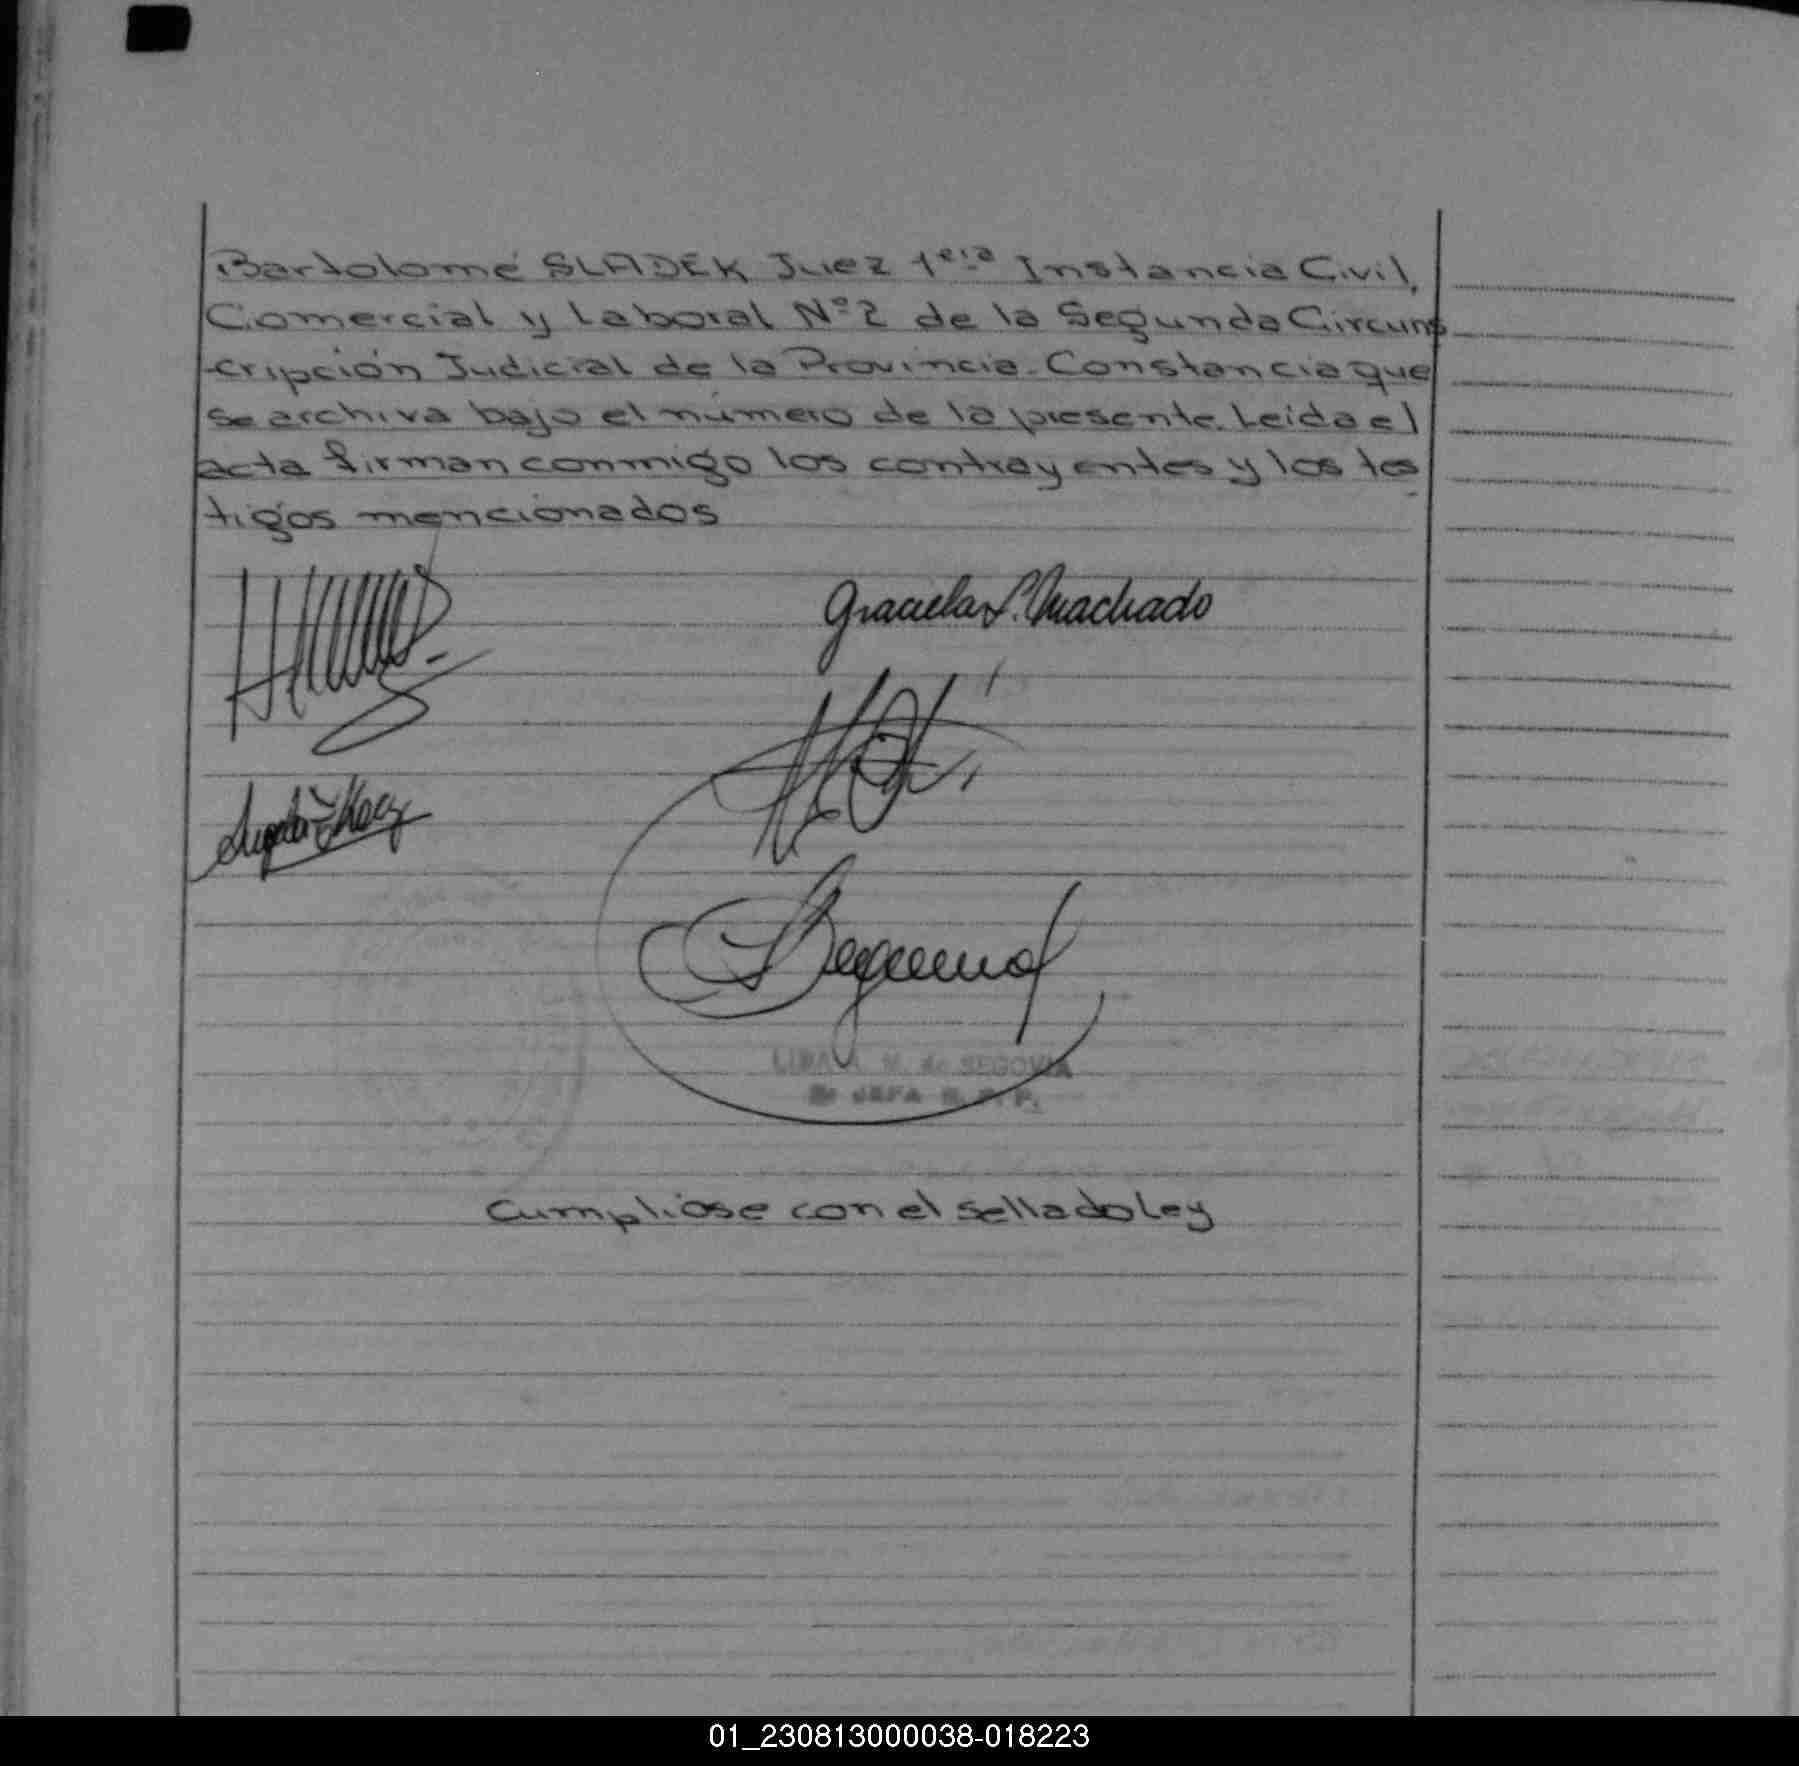 Bartolomé SLADEK Juez 1era Instancia Civil,
Comercial y Laboral Nº2 de la Segunda Circuns
-cripción Judicial de la Provincia. Constancia que
se archiva bajo el número de la presente. Leida el
acta firman conmigo los contrayentes y los tes
tigos mencionados
Graciela S. Machado
LIDIA A. M. de SEGOVIA
JEFA
Cumpliose con el sellado ley
01_230813000038-018223